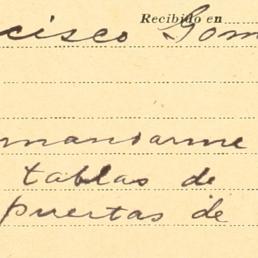 Recibido en
cisco Gom
mandarme
tablas de
puertas de